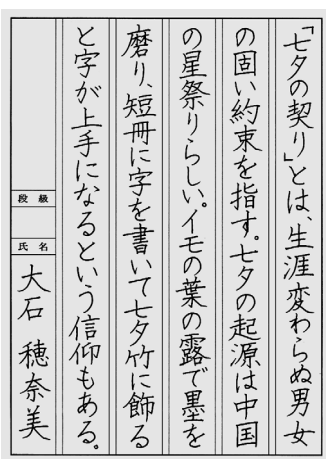 「七夕の契り」とは、生涯変わらぬ男女
の固い約束を指す。七夕の起源は中国
の星祭りらしい。イモの葉の露で墨を
磨り、短冊に字を書いて七夕竹に飾る
と字が上手になるという信仰もある。
段級
氏名
大石 穂奈美